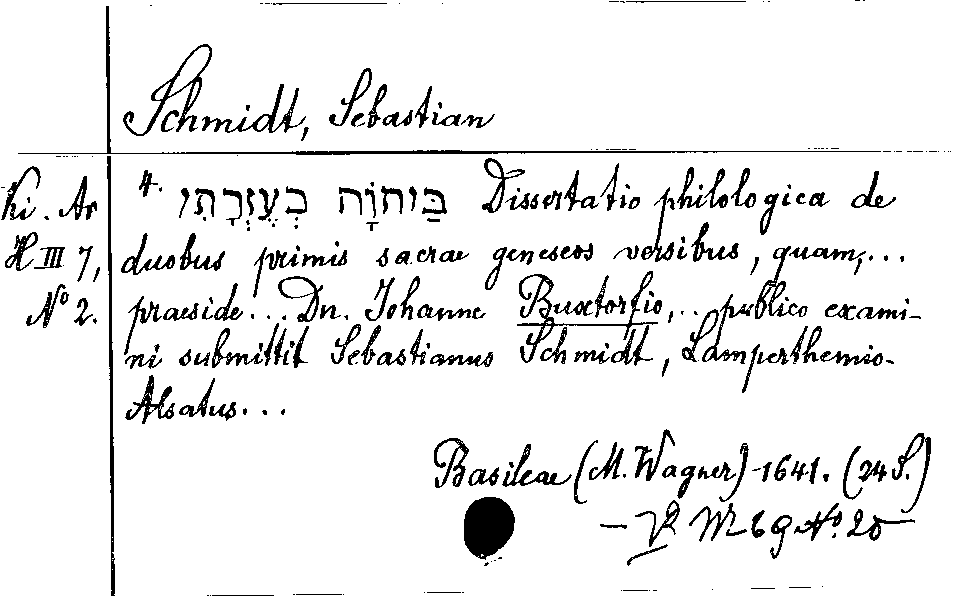 Schmidt, Sebastian
Ki. Ar
H III 7,
No 2.
4. בַּיהוָֹה כְעֶזְרָתִי Dissertatio philologica de
duobus primis sacrae geneseos versibus, quam, ...
praeside... Dn. Johanne Buxtorfio, .. publico exami-
ni submittit Sebastianus Schmidt, Lamperthemio-
Alsatus...
Basileae (M. Wagner) 1641. (24 S.)
No. 20